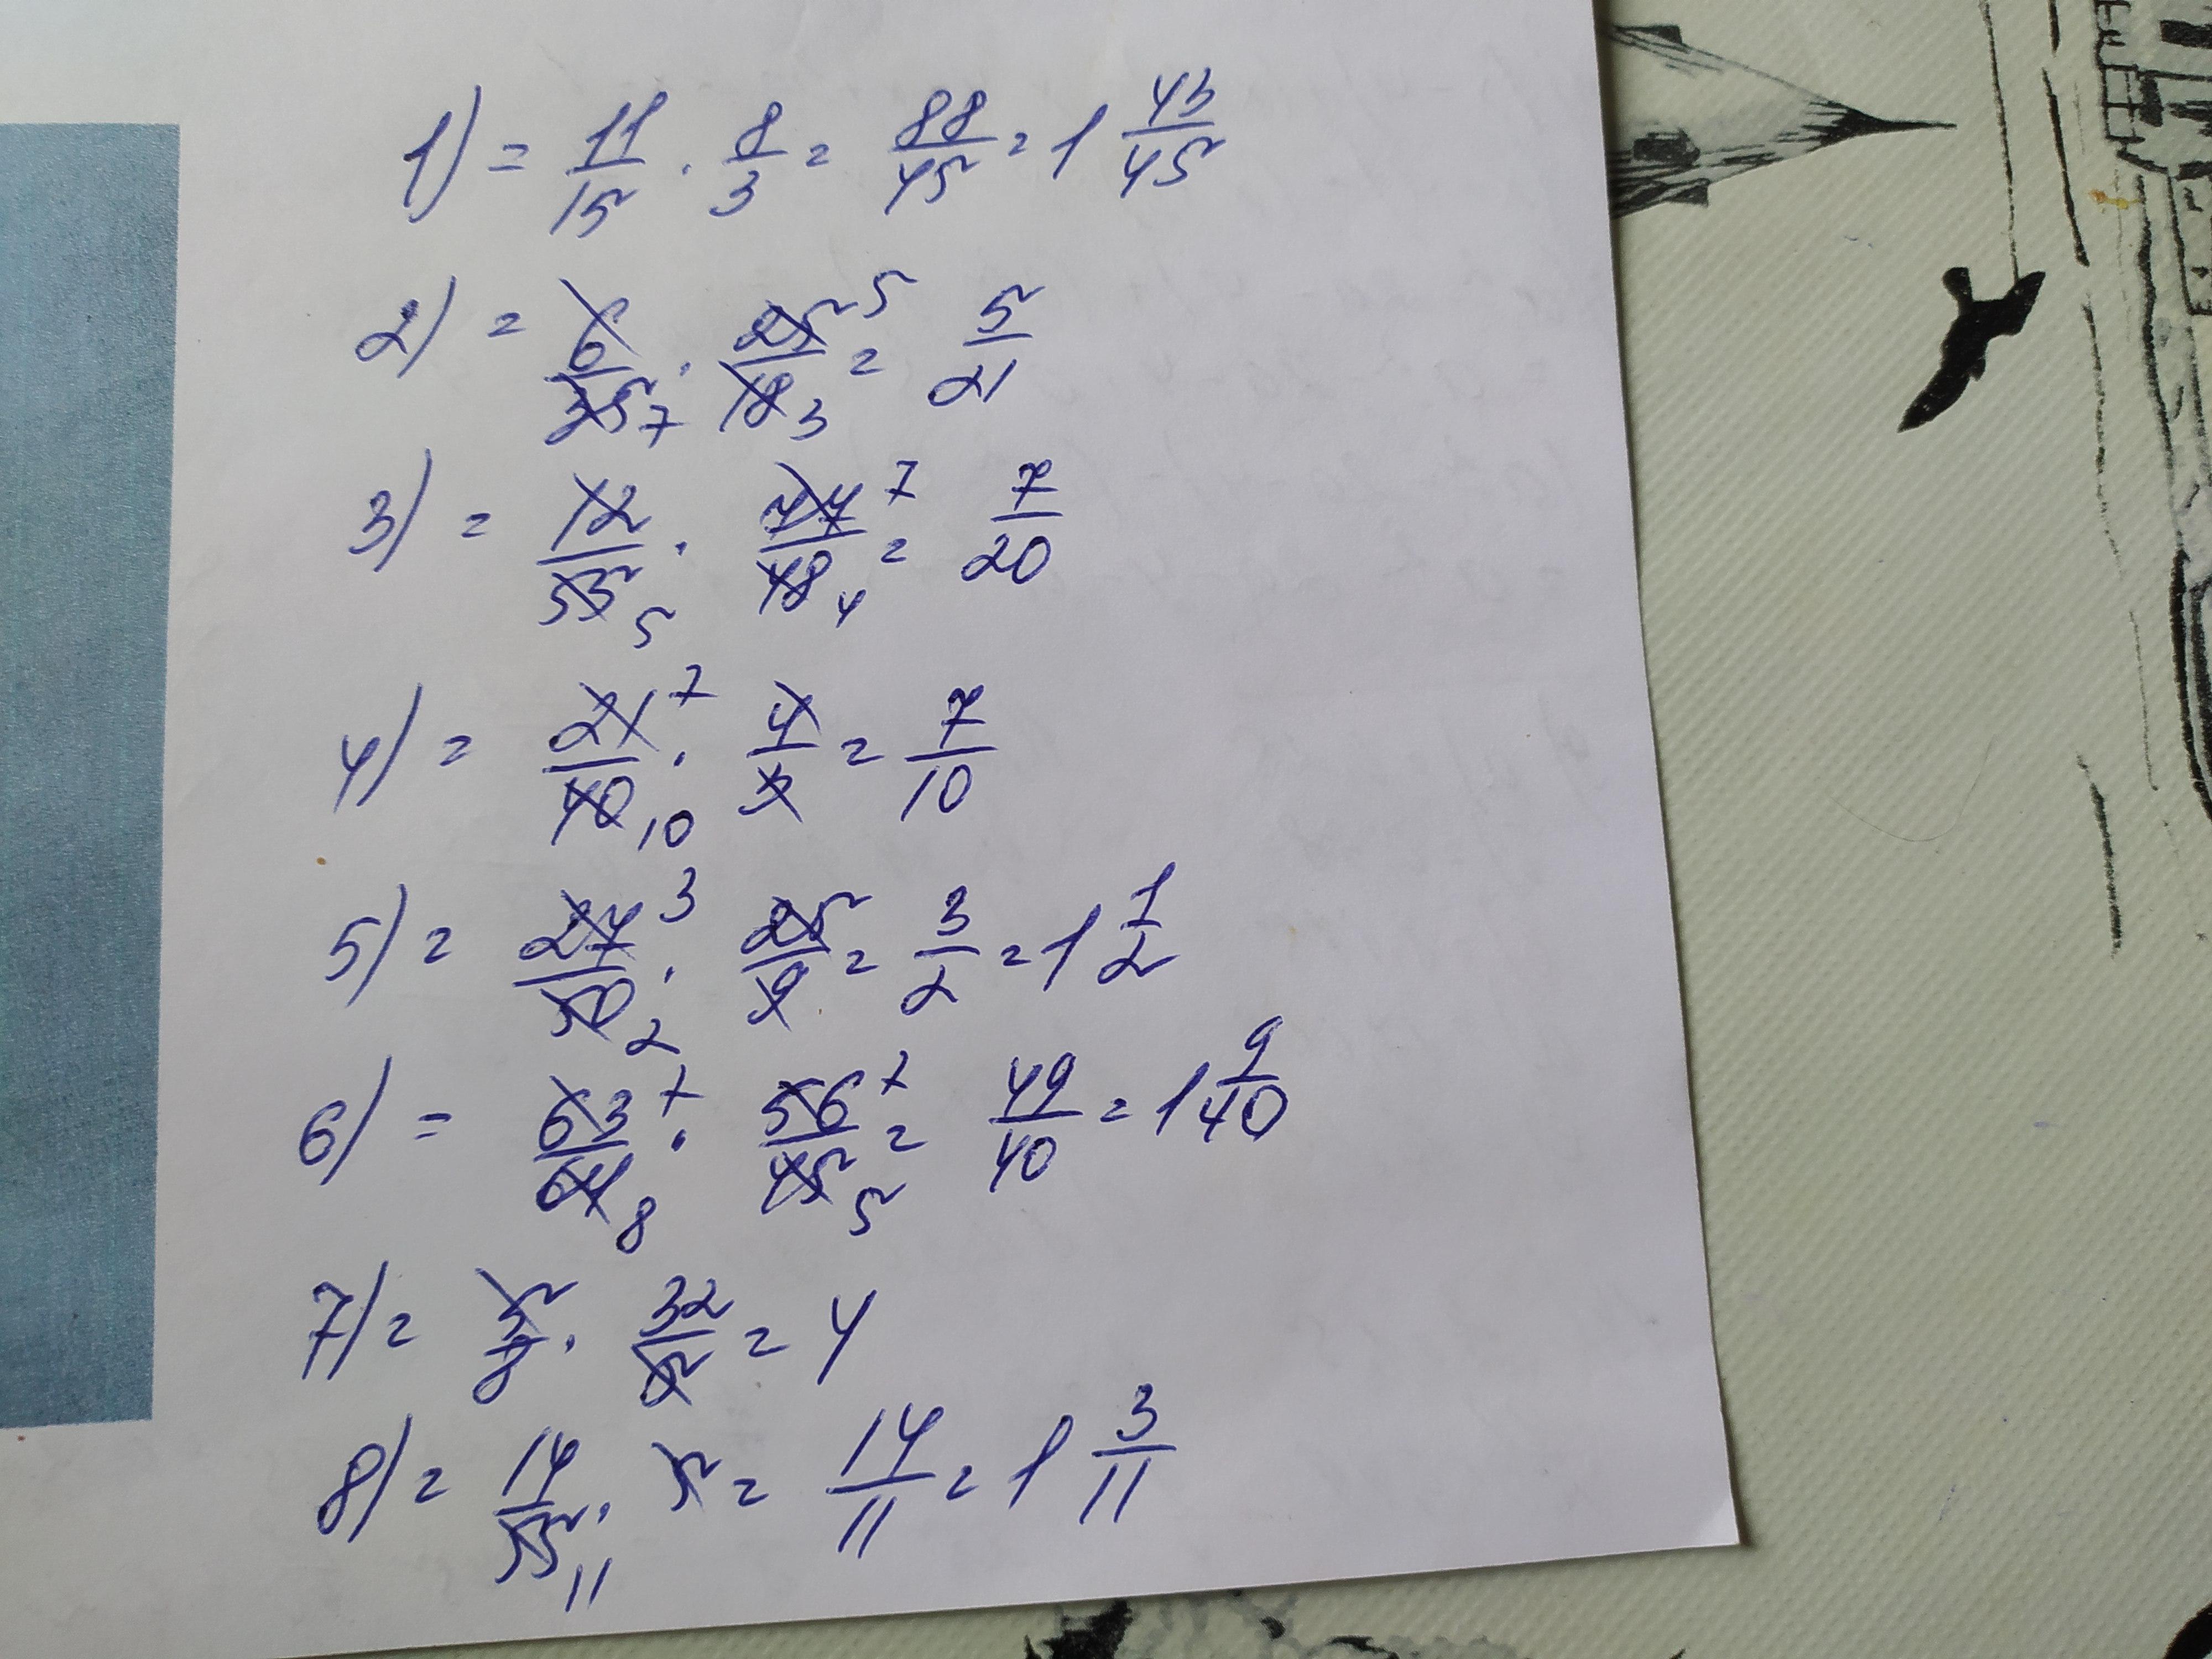 1) = 11/15 · 8/3 = 88/45 = 1 43/45
2) = 6/35 7 · 25 5/18 3 = 5/21
3) = 12/55 5 · 77 7/48 4 = 7/20
4) = 21 7/40 10 · 4/3 = 7/10
5) = 27 3/50 2 · 25/9 = 3/2 = 1 1/2
6) = 63 7/64 8 · 56 7/45 5 = 49/40 = 1 9/40
7) = 5/8 · 32/5 = 4
8) = 14/55 11 · 5 = 14/11 = 1 3/11